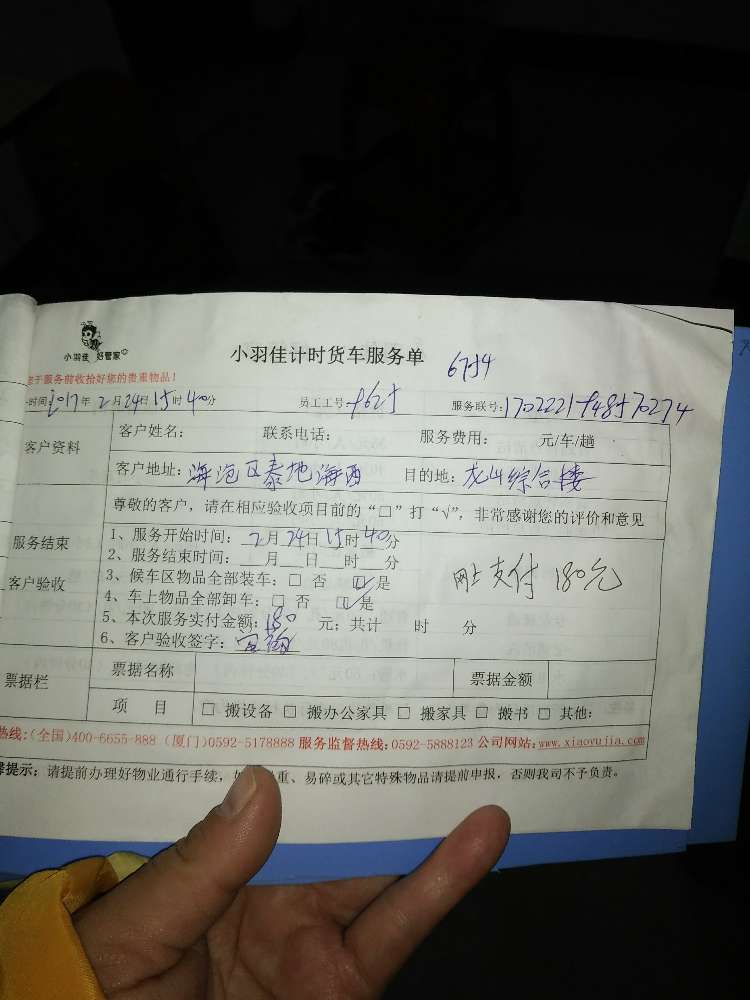 小羽佳 好管家
小羽佳计时货车服务单
于服务前收拾好您的贵重物品！
时间：2017年2月24日15时40分 员工工号： 服务联号：
客户资料 客户姓名： 联系电话： 服务费用： 元/车/趟
客户地址：海沧区泰地海西 目的地：龙山综合楼
尊敬的客户，请在相应验收项目前的“□”打“√”，非常感谢您的评价和意见
服务结束
客户验收
1、服务开始时间：2月24日15时40分
2、服务结束时间： 月 日 时 分
3、候车区物品全部装车：□ 否 ☑是
4、车上物品全部卸车：□ 否 ☑是
网上支付 180元
5、本次服务实付金额：180 元；共计 时 分
6、客户验收签字：
票据栏 票据名称 票据金额
项 目 □ 搬设备 □ 搬办公家具 □ 搬家具 □ 搬书 □ 其他：
热线：(全国)400-6655-888 (厦门)0592-5178888 服务监督热线：0592-5888123 公司网站：www.xiaoyujia.com
提示：请提前办理好物业通行手续， 重、易碎或其它特殊物品请提前申报，否则我司不予负责。